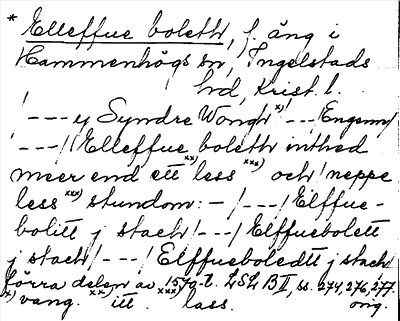 * Elleffue boleth, f. äng i
Hammenhögs sn, Ingelstads
hd, Krist. l.
/---y Syndre Wongh x) /---/Engenn/
/---/Elleffue boleth inthed
meer end ett xx) less xxx) och neppe
less xxx) stundom: - /---/Elffue-
bolitt j stack/---/Elffuebolett
j stack/---/Elffueboledtt j stack
förra delen av 1570-t. LSL B II, ss. 274, 276, 277.
x) vang. xx) itt. xxx) lass. orig.